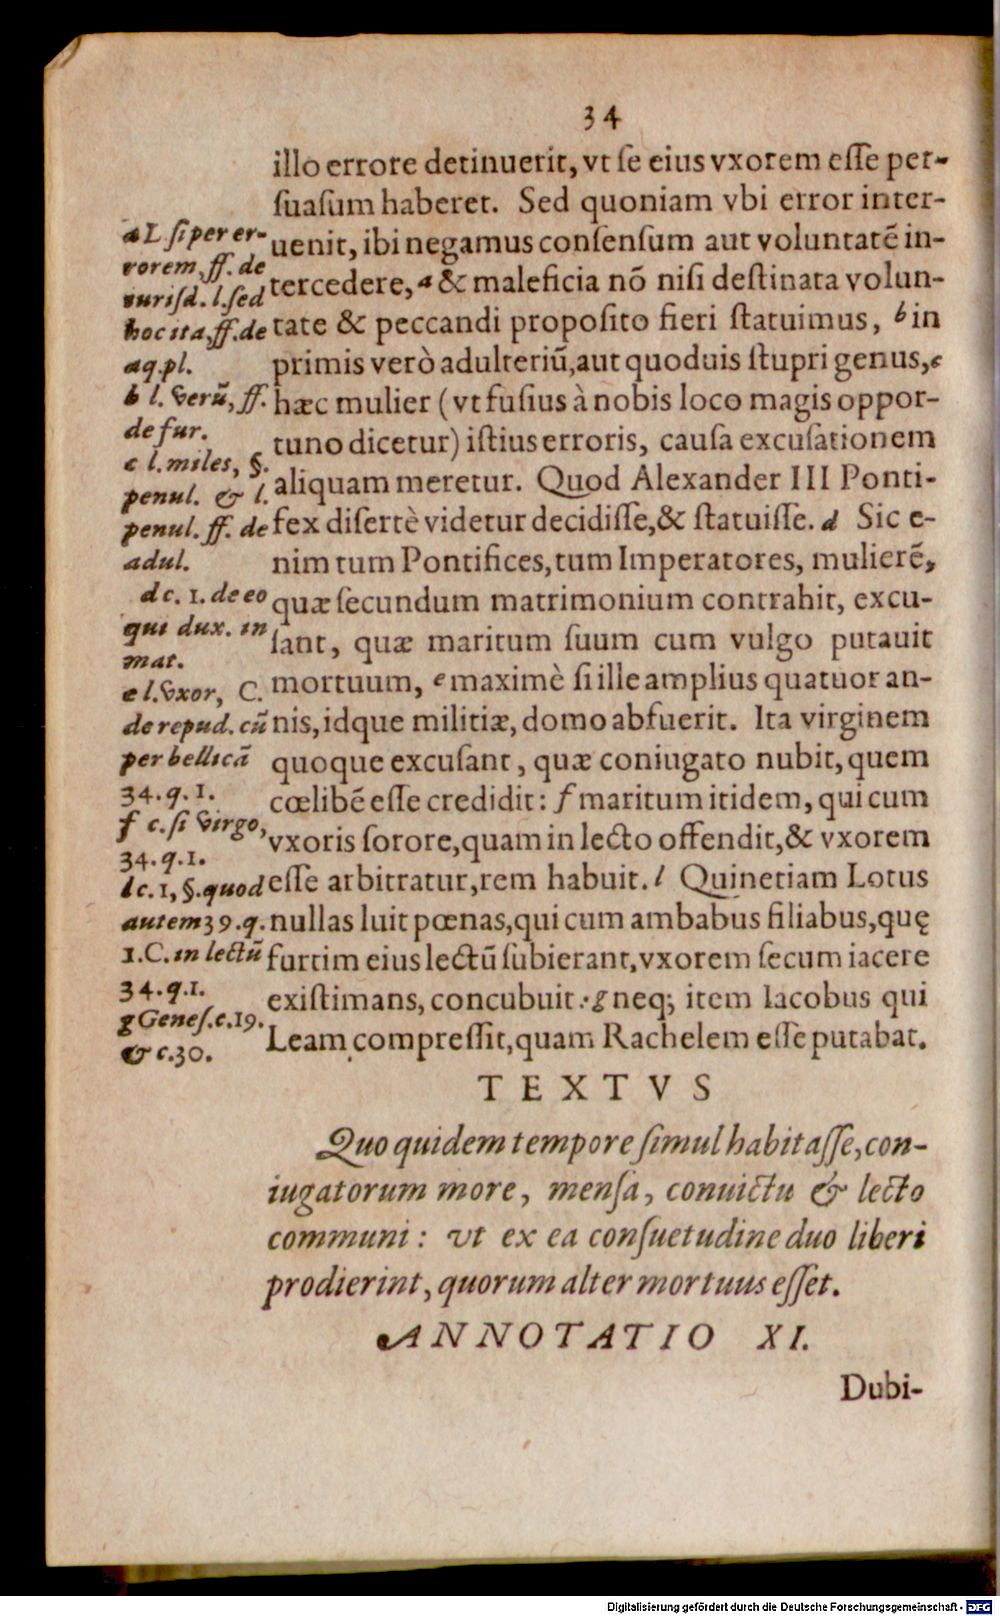 34
illo errore detinuerit, vt se eius vxorem esse per-
suasum haberet. Sed quoniam vbi error inter-
uenit, ibi negamus consensum aut voluntatē in-
tercedere, a & maleficia nō nisi destinata volun-
tate & peccandi proposito fieri statuimus, b in
primis verò adulteriū, aut quoduis stupri genus, c
hæc mulier (vt fusius à nobis loco magis oppor-
tuno dicetur) istius erroris, causa excusationem
aliquam meretur. Quod Alexander III Ponti-
fex disertè videtur decidisse, & statuisse. d Sic e-
nim tum Pontifices, tum Imperatores, mulierē,
quæ secundum matrimonium contrahit, excu-
sant, quæ maritum suum cum vulgo putauit
mortuum, e maximè si ille amplius quatuor an-
nis, idque militiæ, domo abfuerit. Ita virginem
quoque excusant, quæ coniugato nubit, quem
cœlibē esse credidit: f maritum itidem, qui cum
vxoris sorore, quam in lecto offendit, & vxorem
esse arbitratur, rem habuit. l Quinetiam Lotus
nullas luit pœnas, qui cum ambabus filiabus, quę
furtim eius lectū subierant, vxorem secum iacere
existimans, concubuit: g neq; item Iacobus qui
Leam compressit, quam Rachelem esse putabat.
a L si per er-
rorem, ff. de
iurisd. l. sed
hoc ita, ff. de
aq. pl.
b l. verū, ff.
de fur.
c l. miles, §.
penul. & l.
penul. ff. de
adul.
d c. 1. de eo
qui dux. in
mat.
e l. vxor, C.
de repud. cū
per bellicā
34. q. 1.
f c. si virgo,
34. q. 1.
l c. 1, §. quod
autem 39. q.
1. C. in lectū
34. q. 1.
g Genes. c. 19.
& c. 30.
TEXTVS
Quo quidem tempore simul habitasse, con-
iugatorum more, mensa, conuictu & lecto
communi: vt ex ea consuetudine duo liberi
prodierint, quorum alter mortuus esset.
ANNOTATIO XI.
Dubi-
Digitalisierung gefördert durch die Deutsche Forschungsgemeinschaft - DFG